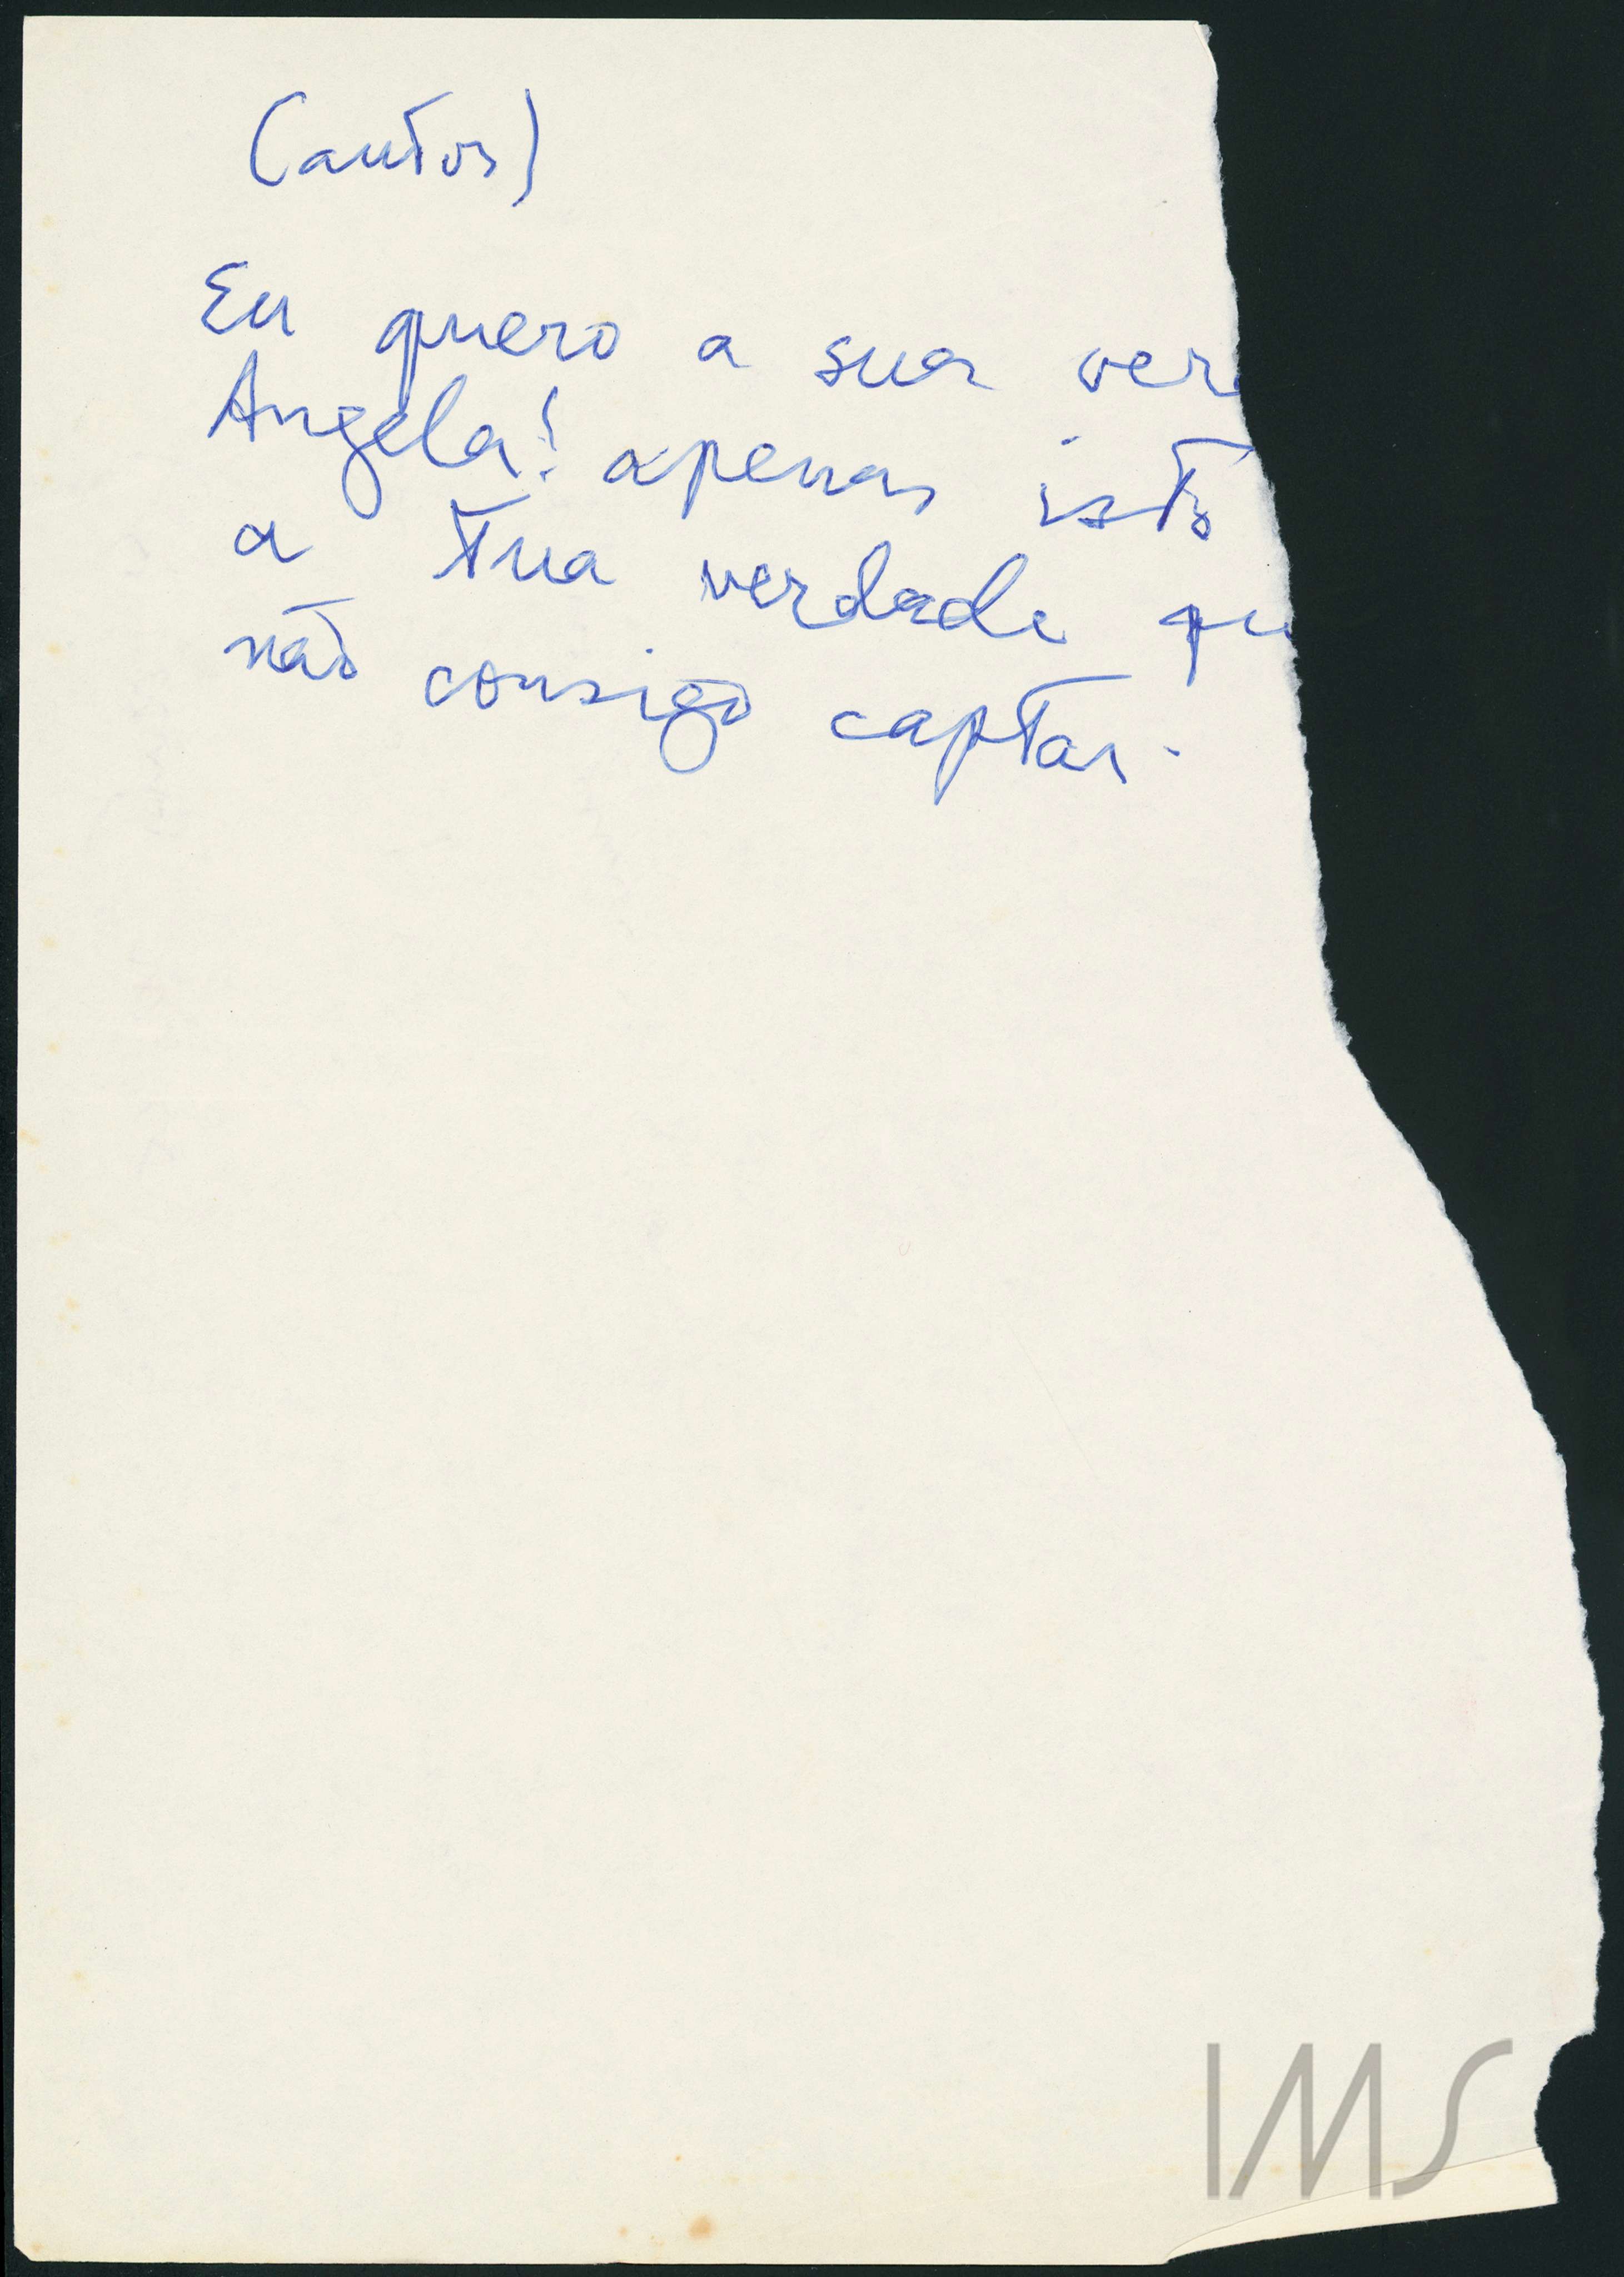 (autor)
Eu quero a sua ver
Angela! apenas isto
a tua verdade qu
não consigo captar.
IMS